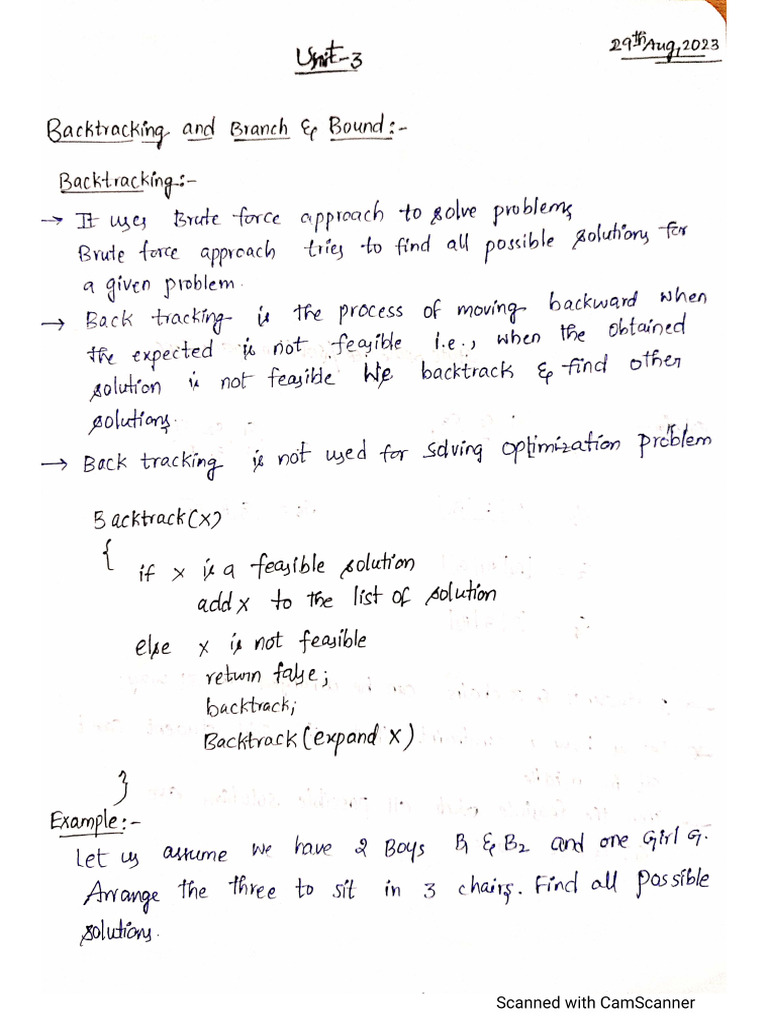 Unit-3
29th Aug, 2023
Backtracking and Branch & Bound:-
Backtracking:-
→ It uses Brute force approach to solve problems
Brute force approach tries to find all possible solutions for
a given problem.
→ Back tracking is the process of moving backward when
the expected is not feasible i.e., when the obtained
solution is not feasible We backtrack & find other
solutions.
→ Back tracking is not used for solving optimization problem
Backtrack(x)
{
if x is a feasible solution
add x to the list of solution
else x is not feasible
return false;
backtrack;
Backtrack(expand x)
}
Example:-
Let us assume we have 2 Boys B1 & B2 and one Girl G.
Arrange the three to sit in 3 chairs. Find all possible
solutions.
Scanned with CamScanner